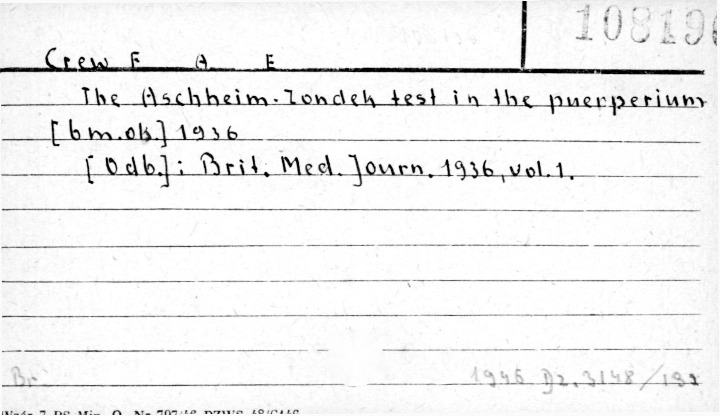 108190
Crew F A E
The Aschheim-Zondek test in the puerperium
[b m. ok.] 1936
[Odb.]: Brit. Med. Journ. 1936, vol. 1.
Br. 1946 Dz. 3148/132